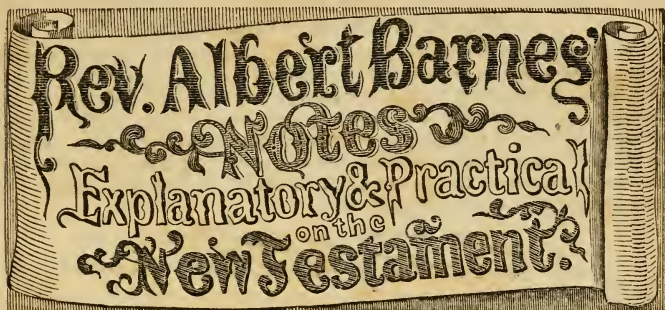 Rev. Albert Barnes'
Notes
Explanatory & Practical
on the
New Testament.